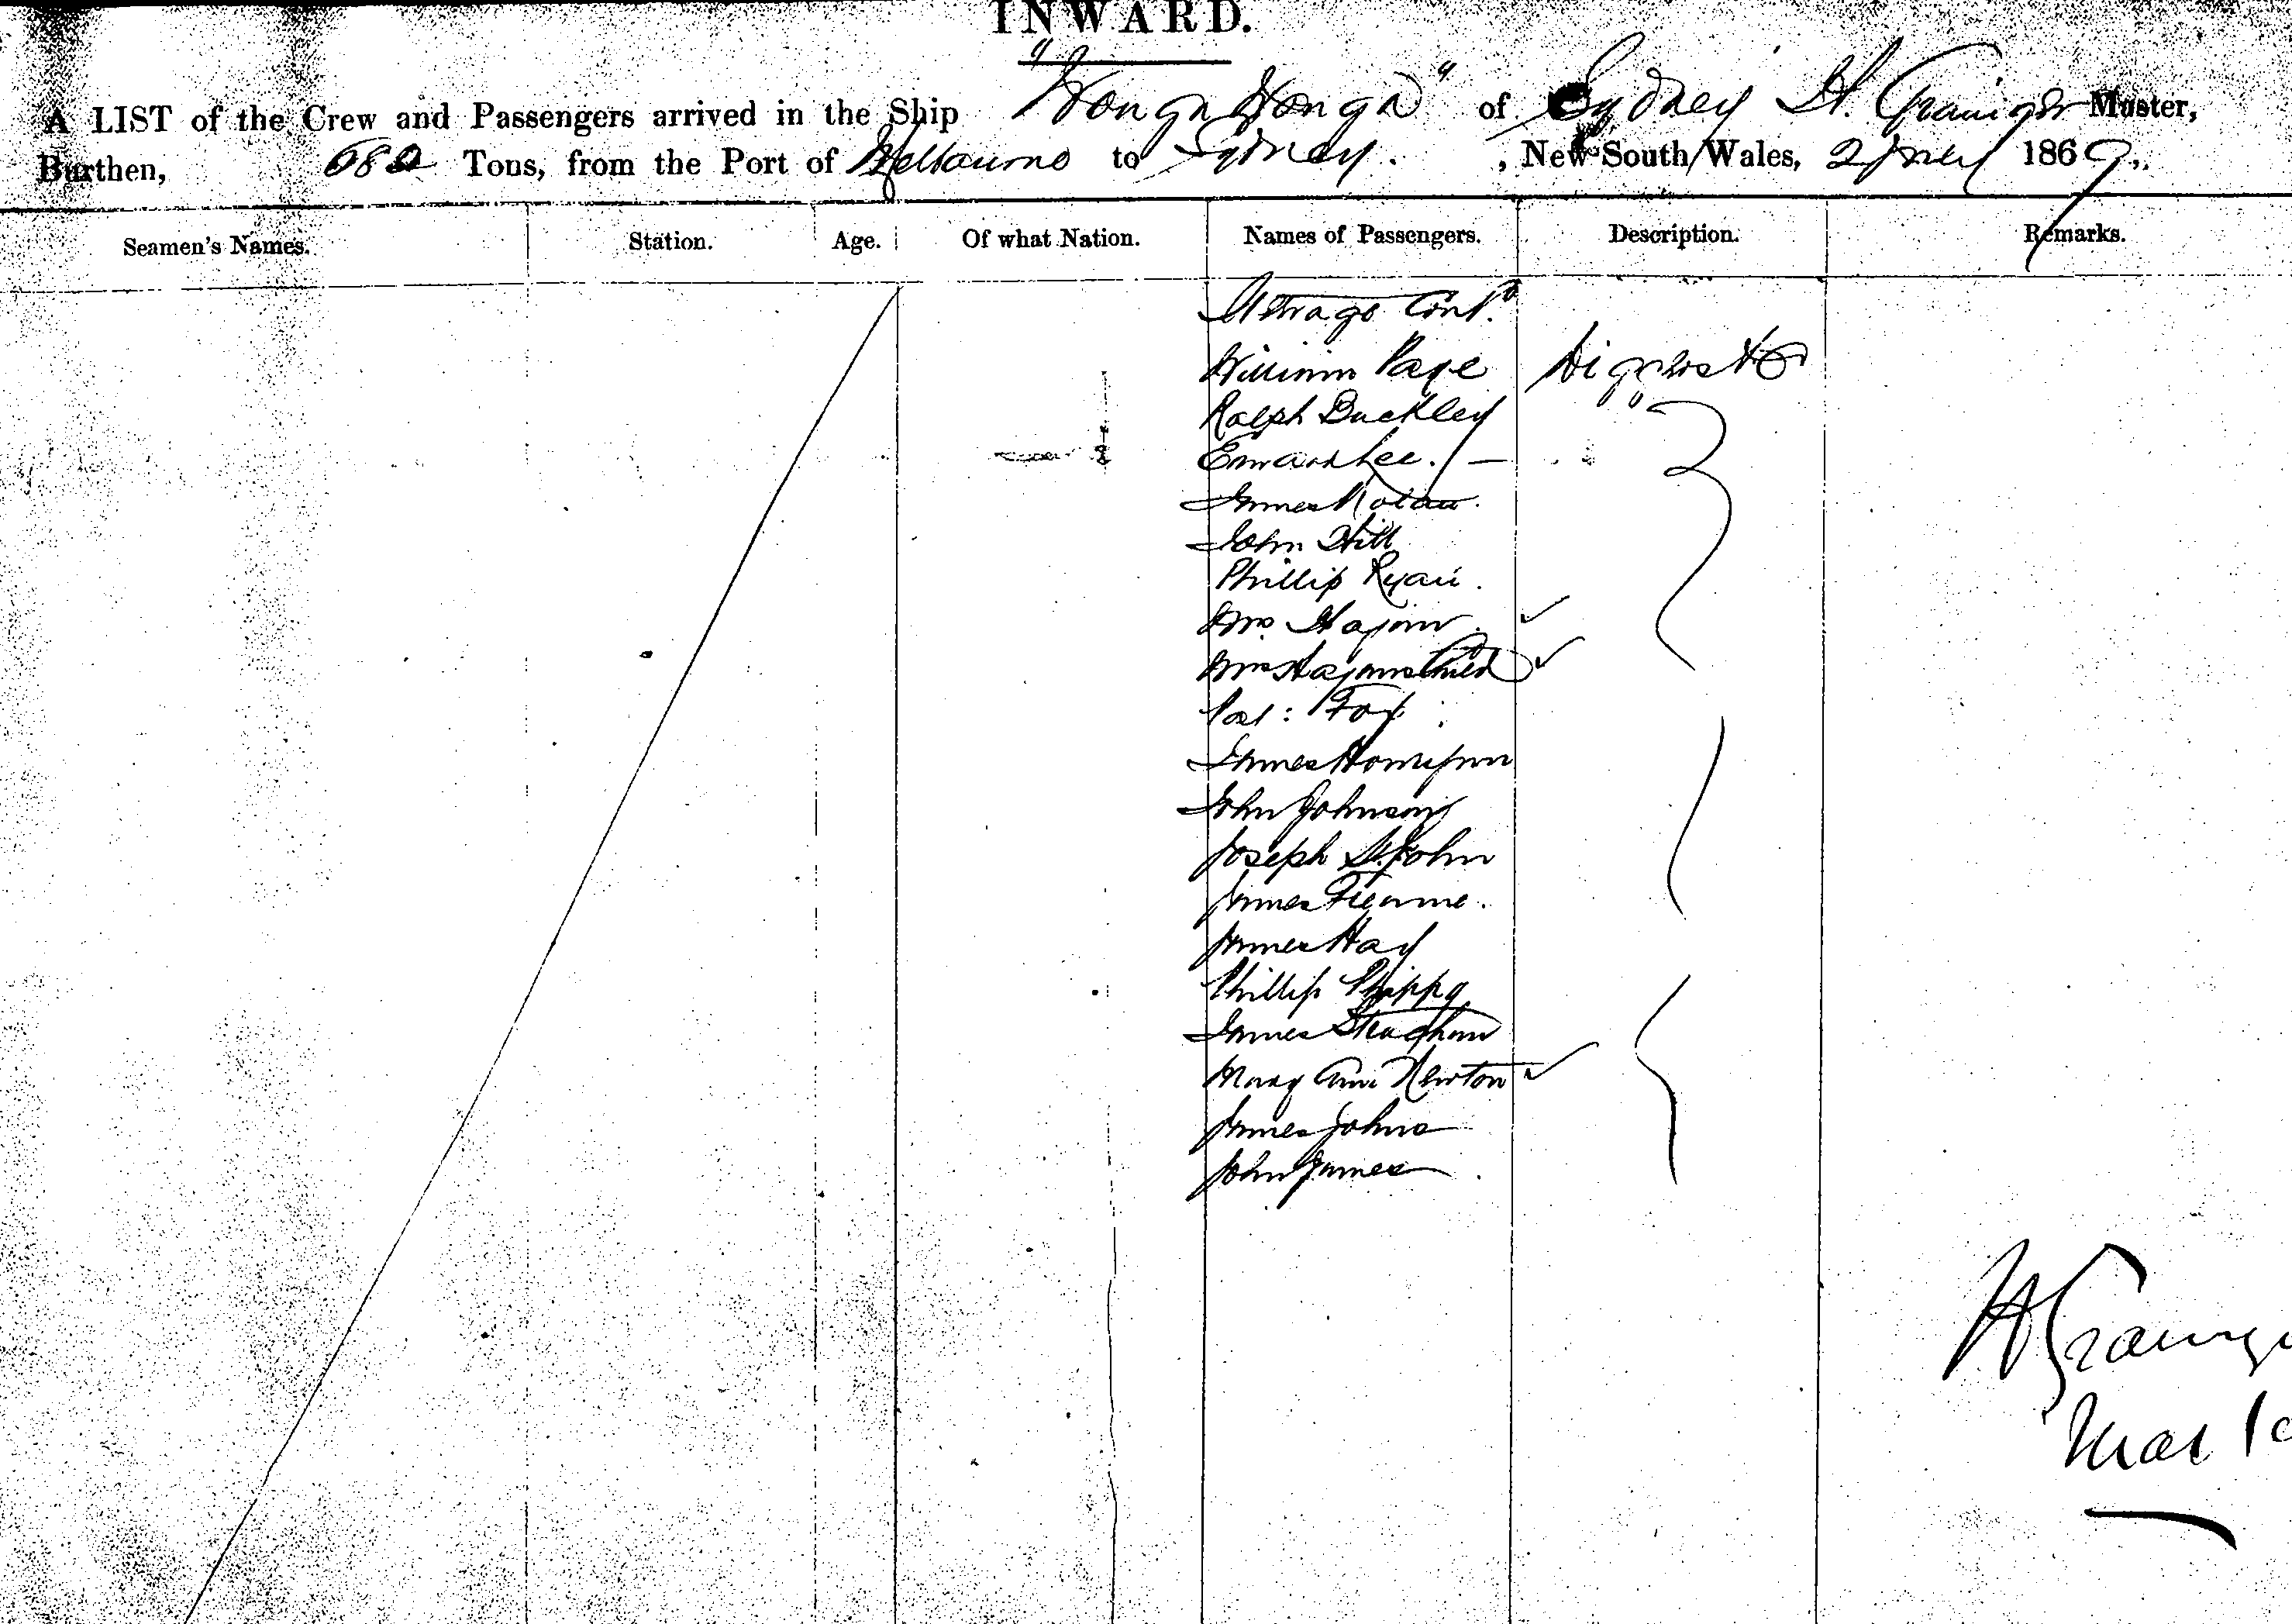 INWARD.
A LIST of the Crew and Passengers arrived in the Ship "Wonga Wonga" of Sydney H. Grainger Master,
Burthen, 680 Tons, from the Port of Melbourne to Sydney. , New South Wales, 2 1869.
Seamen's Names. Station. Age. Of what Nation. Names of Passengers. Description. Remarks.
Steerage Contd
William Page
Ralph Buckley
Edward Lee.
James Nolan.
John Hill
Phillip Ryan.
Mrs
Mrs Child
Pat: Fox
James Thompson
John Johnson
Joseph St. John
James
James Hay
Phillip
James Straghan
Mary Ann Newton
James Johns
John James
H Grainge
Maste